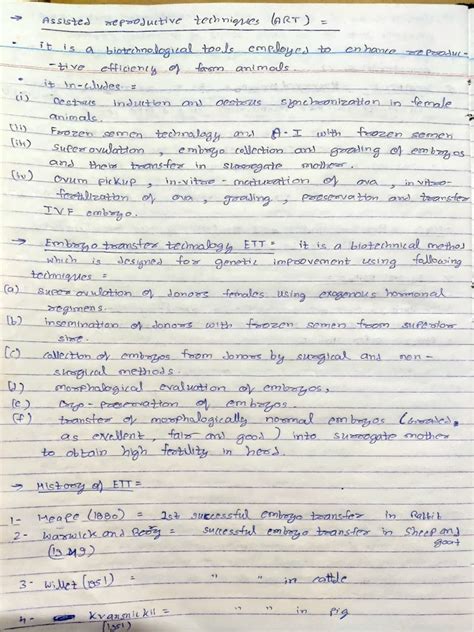 → Assisted reproductive techniques (ART) =
• it is a biotechnological tools employed to enhance reproduc-
-tive efficiency of farm animals.
• it in-cludes =
(i) Oestrus induction and oestrous synchronization in female
animals.
(ii) Frozen semen technology and A-I with frozen semen
(iii) Superovulation, embryo collection and grading of embryos
and their transfer in surrogate mother.
(iv) Ovum pickup, in-vitro-maturation of ova, in vitro-
fertilization of ova, grading, preservation and transfer
IVF embryo.
→ Embryo transfer technology ETT = it is a biotechnical method
which is designed for genetic improvement using following
techniques =
(a) super ovulation of donors females using exogenous hormonal
regimens.
(b) insemination of donors with frozen semen from superior
sire.
(c) collection of embryos from donors by surgical and non-
surgical methods.
(d) morphological evaluation of embryos,
(e) Cryo-preservation of embryos.
(f) transfer of morphologically normal embryos (Graded
as excellent, fair and good) into surrogate mother
to obtain high fertility in herd.
→ History of ETT =
1- Heape (1880) = 1st successful embryo transfer in Rabbit
2- Warwick and Berry = successful embryo transfer in Sheep and
(1949) goat
3- Willet (1951) = " " in cattle
4- Kvansnickii = " " in pig
(1951)